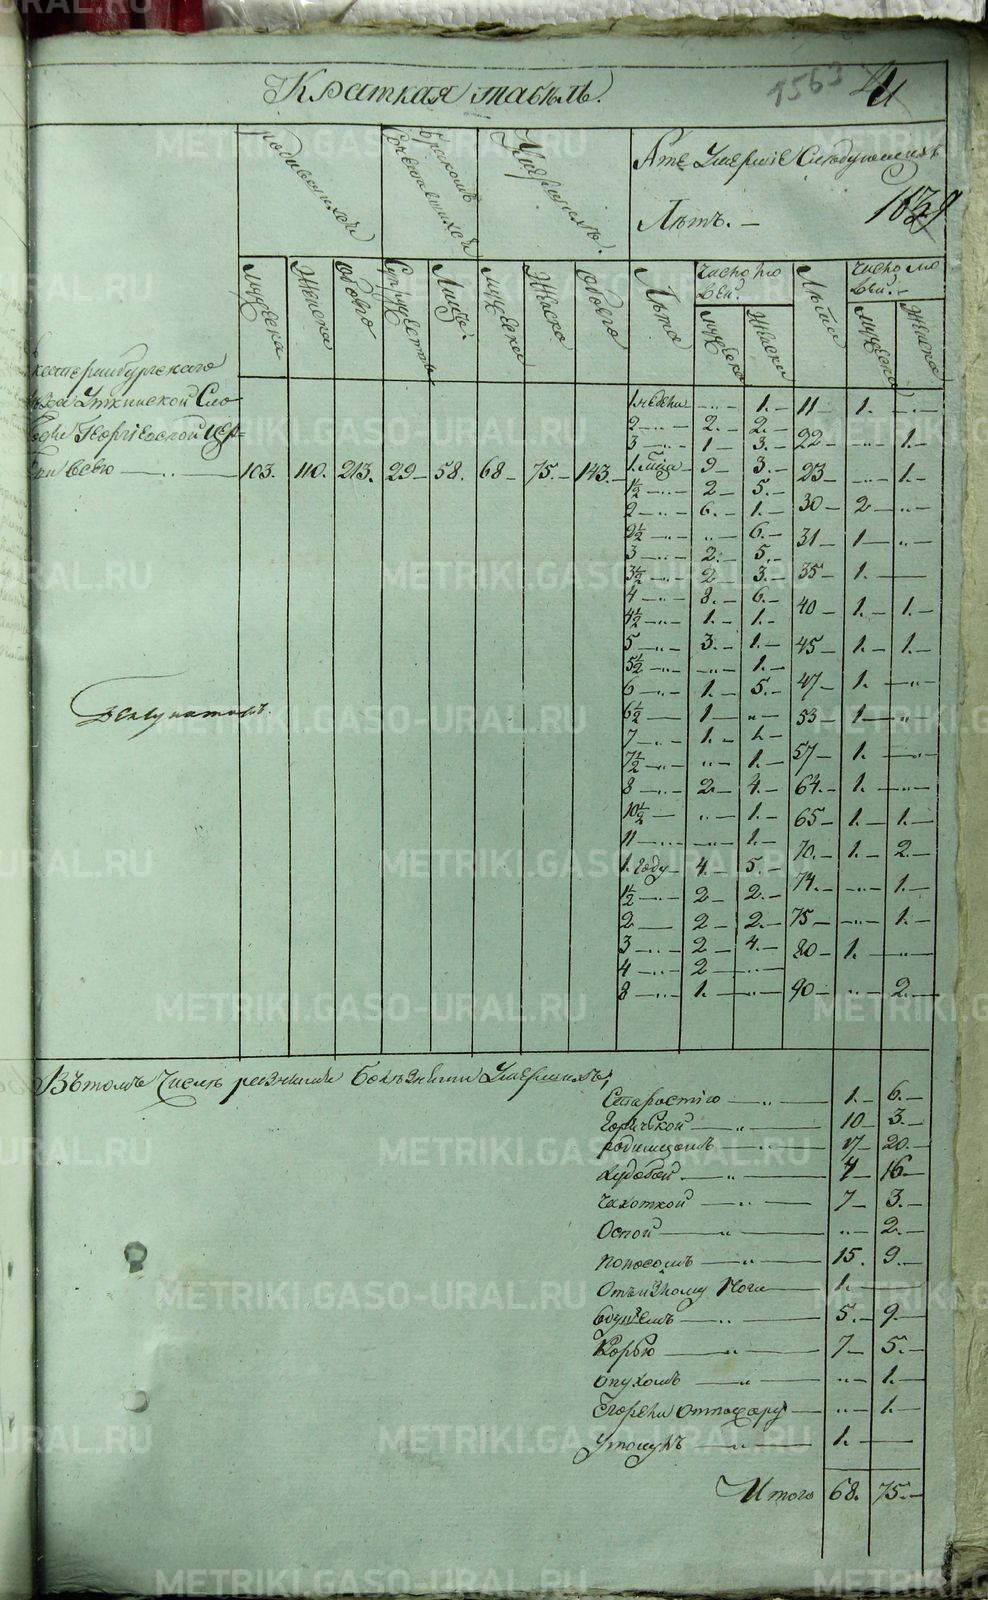 Краткая табель.
1563
Родившихся
Бракомъ Сочетавшихся
Умершихъ.
А те Умершіе Следующихъ
Летъ. —
мужеска
Женска
обоего
Супружествъ
Лицъ
мужеска
Женска
обоего
Лета
число лю
дей.
мужеска
Женска
Лета
число лю
дей. —
мужеска
Женска
Екатеринбургского
уезда Уткинской Сло
боде Георгіевской цер=
кви всего — 103. 110. 213. 29 — 58. 68 — 75. — 143. —
1. недели „ 1. — 11 — 1. — „
2 — „ — 2. — 2. —
3 — „ — 1 — 3. — 22 — „ — 1. —
1. 9 — 3. — 23 — „ — 1. —
1½ — „ — 2 — 5. —
2 — „ — 6. — 1. — 30 — 2 — „
2½ — „ — „ — 6. — 31 — 1 — „
3 — „ — 2. — 5. —
3½ — „ — 2 — 3. — 35 — 1. —
4 — „ — 8. — 6. — 40 — 1. — 1. —
4½ — „ — 1. — 1. —
5 — „ — 3. — 1. — 45 — 1. — 1. —
5½ — „ — „ — 1. —
6 — „ — 1. — 5. — 47 — 1. — „
6½ — 1 — „ — 53 — 1 — „
7 — „ — 1. — 1. —
7½ — „ — „ — 1. — 57 — 1. — „
8 — „ — 2. — 4. — 64. — 1. — „
10½ — „ — 1. — 65 — 1. — 1. —
11 — „ — 1. —
1. году — 4. — 5. — 70. — 1. — 2. —
1½ — „ — 2 — 2. — 74. — „ — 1. —
2 — 2 — 2. — 75 — „ — 1. —
3 — „ — 2 — 4. — 80 — 1. — „
4 — „ — 2 — „
8 — „ — 1. — „ — 90 — „ — 2. —
Въ томъ Числе разными Болезнями Умершихъ;
Старостію — „ — 1. — 6. —
Горячкой — „ — 10 — 3. —
родимцомъ — „ — 17 — 20. —
худобой — „ — 4 — 16 —
чахоткой — „ — 7 — 3. —
Оспой — „ — „ — 2. —
поносомъ — „ — 15. 9. —
1. —
5. — 9. —
Корью — „ — 7 — 5. —
опухомъ — „ — „ — 1. —
Сгорени отпожару — „ — 1. —
утонулъ — „ — 1. —
Итого 68. 75. —
METRIKI.GASO-URAL.RU